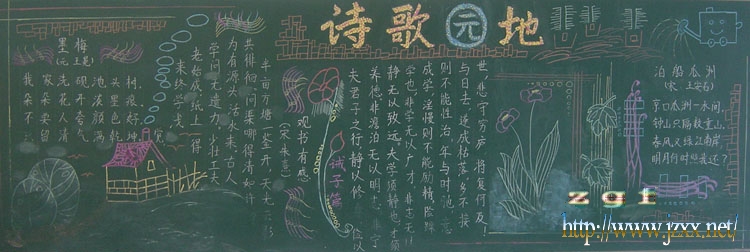 诗歌园地
墨梅
(元 王冕)
我家洗砚池头树,
朵朵花开淡墨痕,
不要人夸颜色好,
只留清气满乾坤
观书有感
(宋 朱熹)
半亩方塘一鉴开,天光云影
共徘徊问渠哪得清如许
为有源头活水来古人
学问无遗力,少壮工夫
老始成纸上得
来终学浅
诫子篇
夫君子之行,静以修身,俭以
养德,非澹泊无以明志,非宁
静无以致远。夫学须静也,才须
学也,非学无以广才,非志无以
成学,淫慢则不能励精,险躁
则不能性治,年与时弛,意
与日去,遂成枯落,多不接
世,悲守穷庐,将复何及!
泊船瓜洲
(宋 王安石)
京口瓜洲一水间,
钟山只隔数重山,
春风又绿江南岸,
明月何时照我还?
zgf
http://www.jzxx.net/